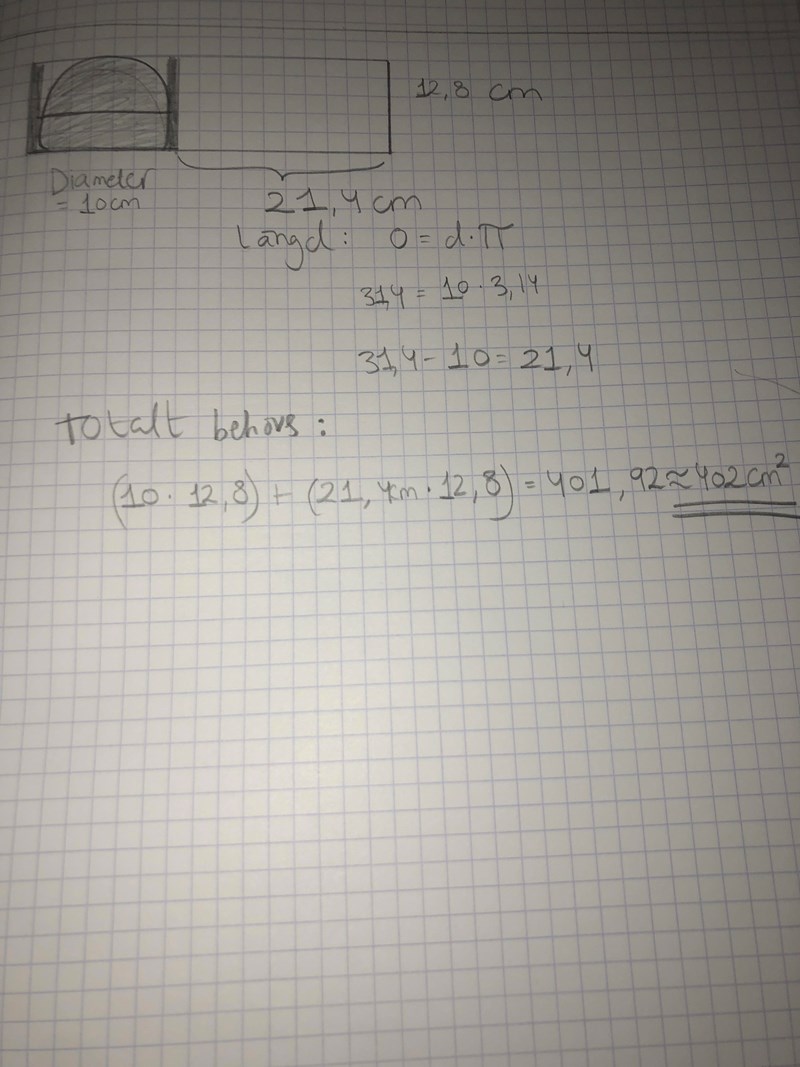 12,8 cm
Diameter
= 10cm
21,4 cm
Längd: O = d·π
31,4 = 10·3,14
31,4 - 10 = 21,4
Totalt behövs:
(10·12,8) + (21,4m·12,8) = 401,92 ≈ 402 cm²